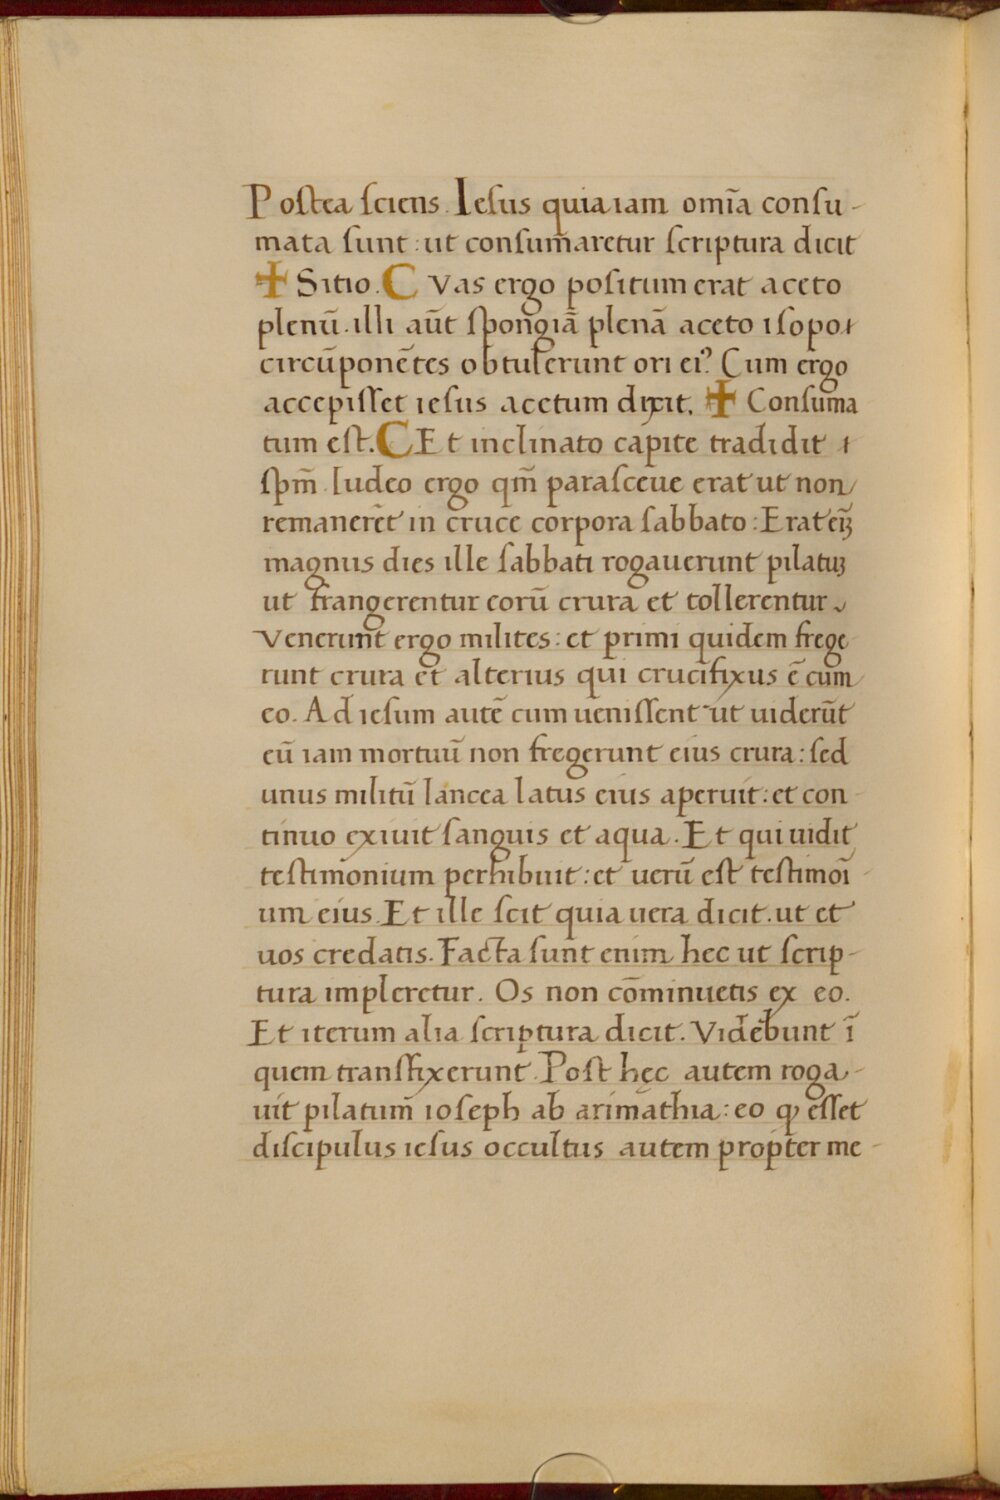 Postea sciens Iesus quia iam om̄ia consu-
mata sunt: ut consum̄aretur scriptura dicit
✠ Sitio. C Vas ergo positum erat aceto
plenū. illi aūt spongiā plenā aceto isopo
circūponētes obtulerunt ori ei? Cum ergo
accepisset iesus acetum dixit. ✠ Consuma
tum est. C Et inclinato capite tradidit
spm̄ Iudeo ergo qm̄ parasceue erat ut non
remanerēt in cruce corpora sabbato: Erat eiꝫ
magnus dies ille sabbati rogauerunt pilatuꝫ
ut frangerentur eorū crura et tollerentur
Venerunt ergo milites: et primi quidem frege
runt crura et alterius qui crucifixus ē cum
eo. Ad iesum autē cum uenissent ut uiderūt
eū iam mortuū non fregerunt eius crura: sed
unus militū lancea latus eius aperuit: et con-
tinuo exiuit sanguis et aqua. Et qui uidit
testimonium perhibuit: et uerū est testimoī-
um eius. Et ille scit quia uera dicit. ut et
uos credatis. Facta sunt enim hec ut scrip-
tura impleretur. Os non cōminuetis ex eo.
Et iterum alia scriptura dicit. Videbunt ī
quem transfixerunt. Post hęc autem roga-
uit pilatum ioseph ab arimathia: eo ꝙ esset
discipulus iesus occultus autem propter me-